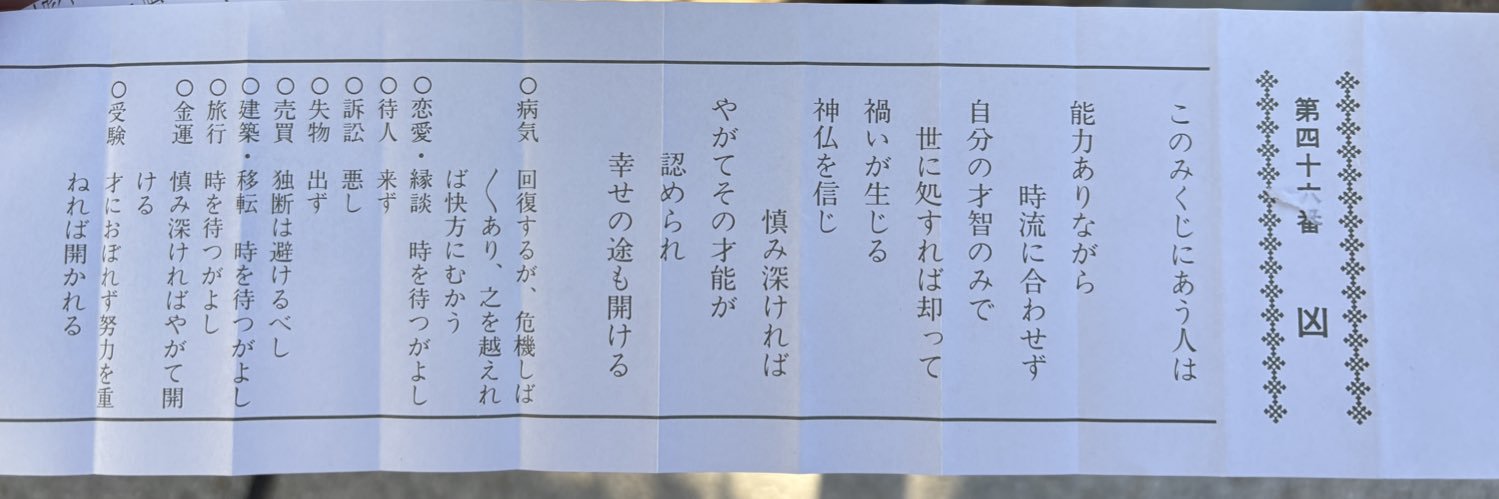 第四十六番 凶
このみくじにあう人は
能力ありながら
時流に合わせず
自分の才智のみで
世に処すれば却って
禍いが生じる
神仏を信じ
慎み深ければ
やがてその才能が
認められ
幸せの途も開ける
○病気 回復するが、危機しば
〱あり、之を越えれ
ば快方にむかう
○恋愛・縁談 時を待つがよし
○待人 来ず
○訴訟 悪し
○失物 出ず
○売買 独断は避けるべし
○建築・移転 時を待つがよし
○旅行 時を待つがよし
○金運 慎み深ければやがて開
ける
○受験 才におぼれず努力を重
ねれば開かれる